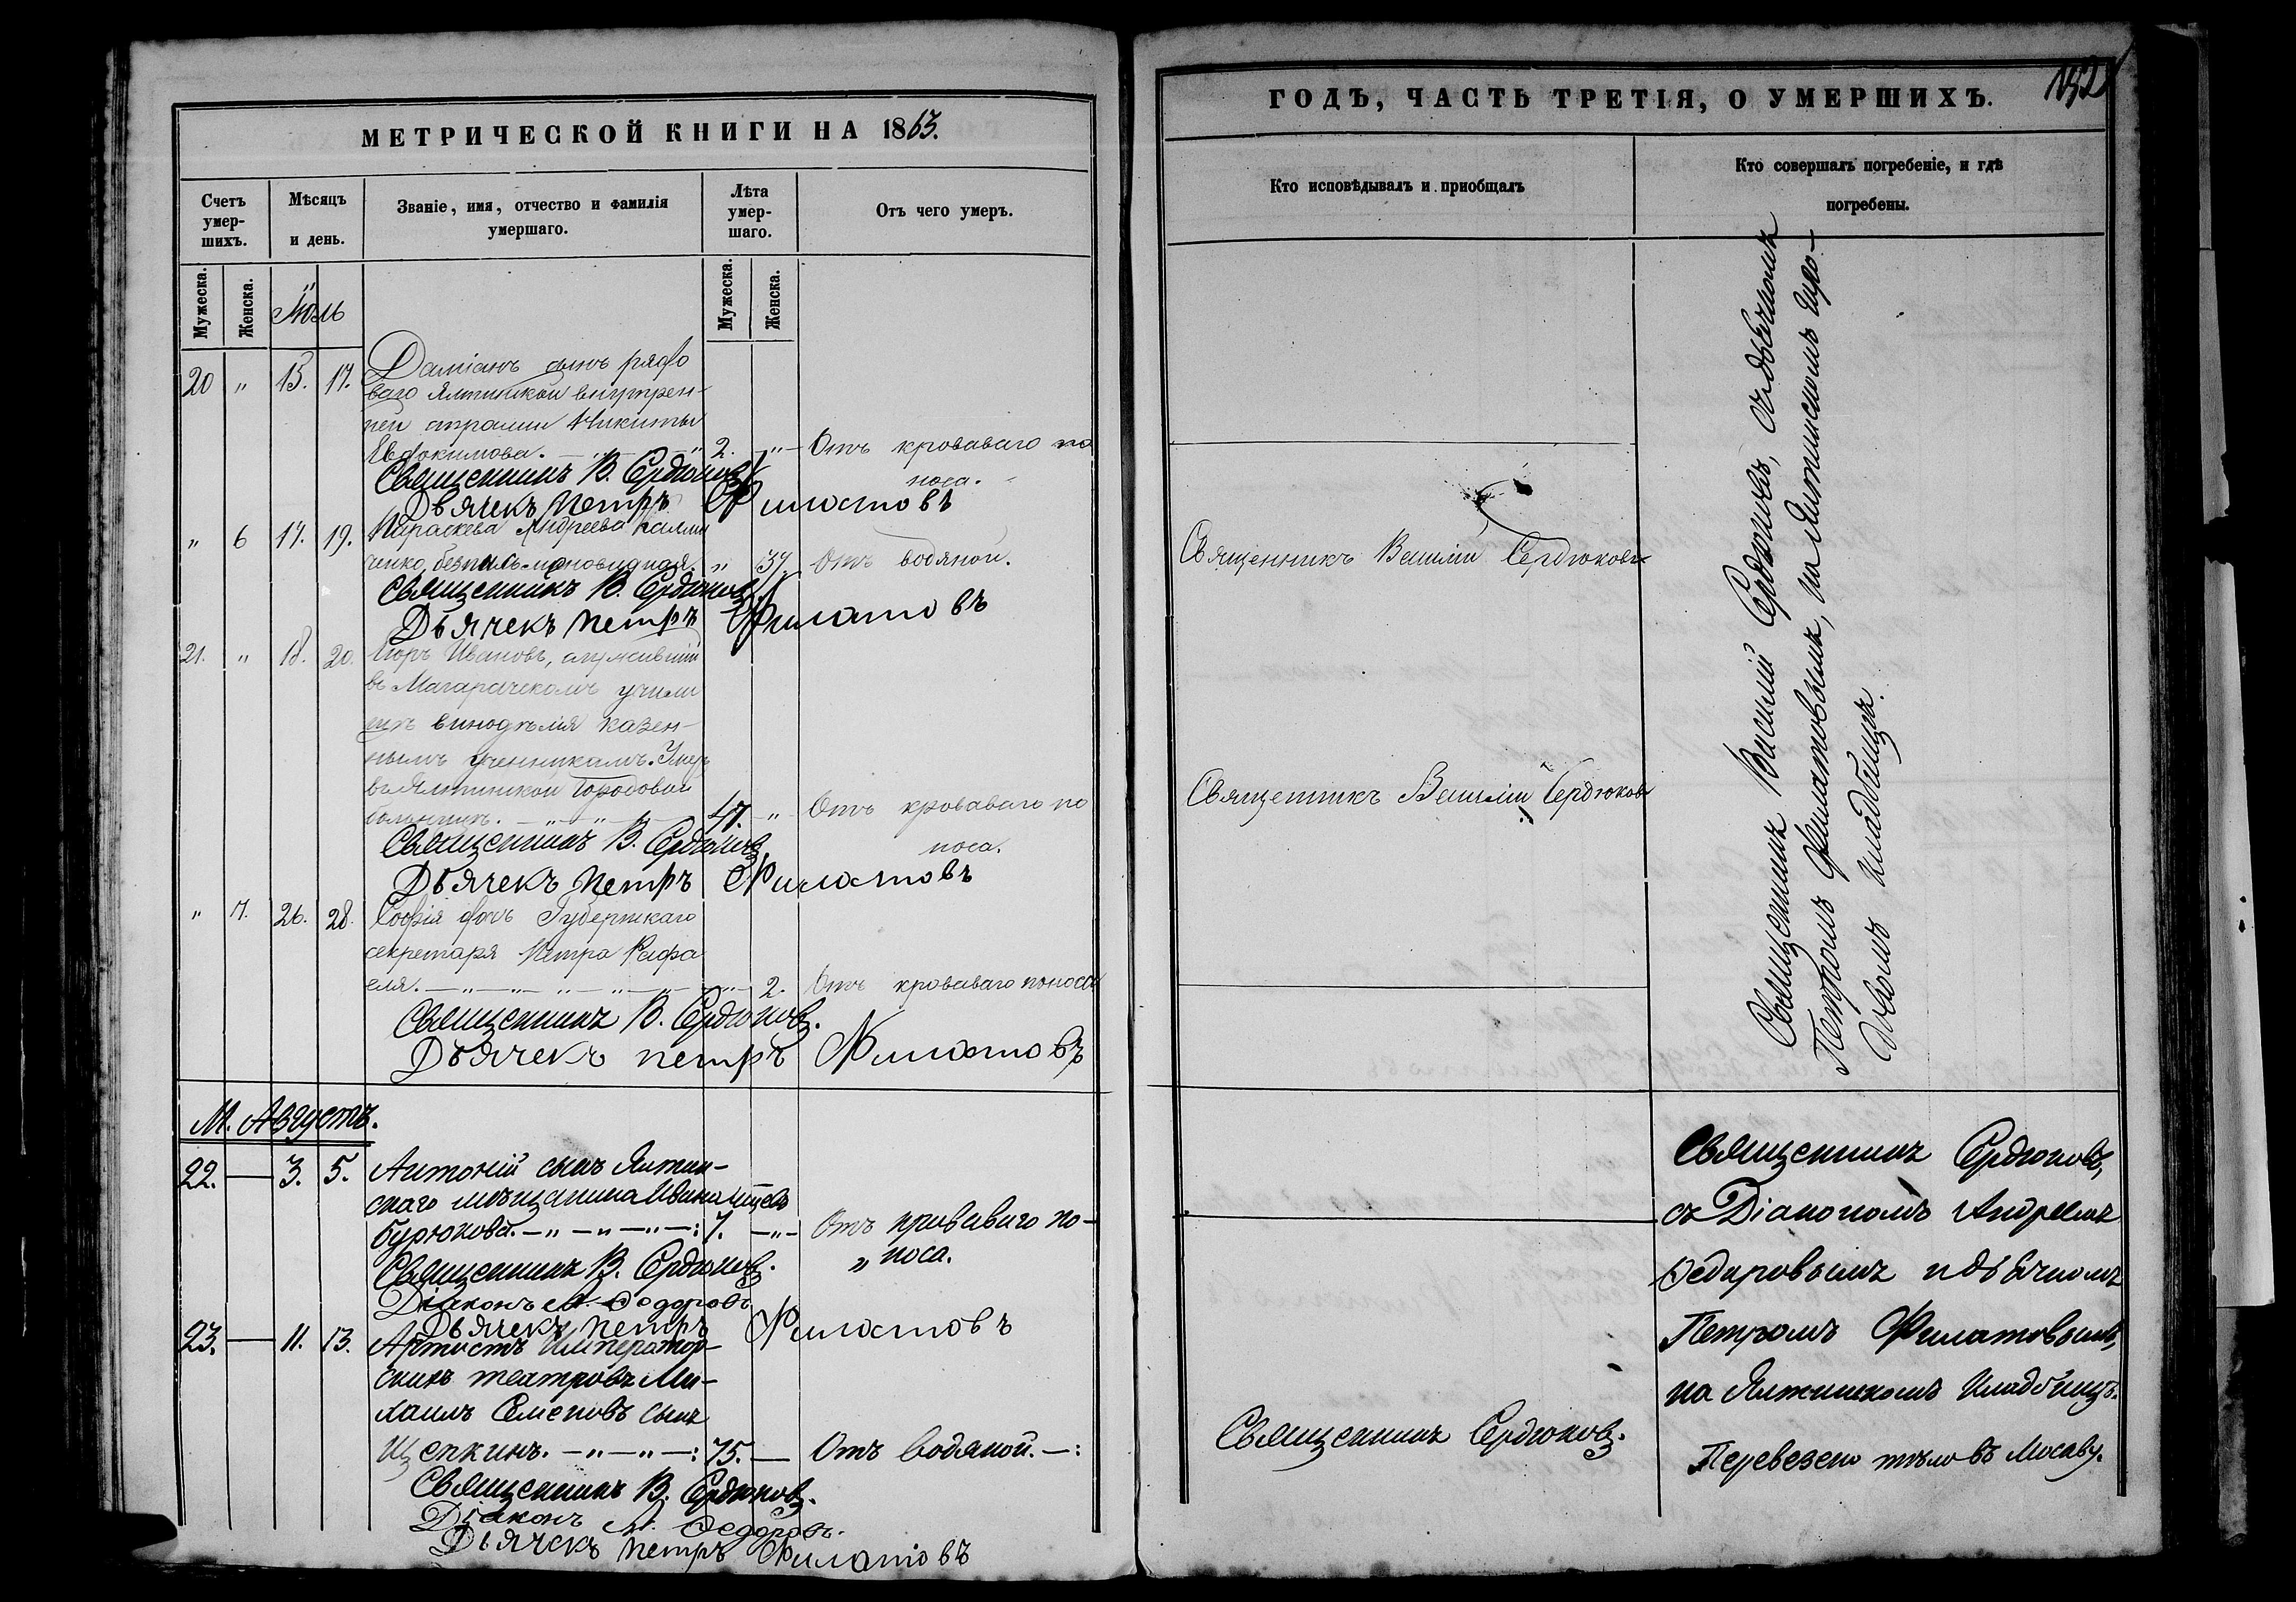 МЕТРИЧЕСКОЙ КНИГИ НА 1863.
Счетъ умер-шихъ.
Мѣсяцъ и день.
Званіе, имя, отчество и фамилія умершаго.
Лѣта умер-шаго.
Отъ чего умеръ.
Мужеска. Женска.
Мужеска. Женска.
Іюль
20 " 15. 17. Даміанъ сынъ рядо
ваго Ялтинской внутрен-
ней стражи Никиты
Евдокимова. — " — " 2. " — Отъ кроваваго по
носа.
Священникъ В. Сердюковъ
Дьячекъ Петръ Филатовъ
" 6 17. 19. Параскева Андреева Калин
ченко, безписьменовидная. " 37. Отъ водяной.
Священникъ В. Сердюковъ
Дьячекъ Петръ Филатовъ
21. " 18. 20. Егоръ Ивановъ, служившій
въ Магарачскомъ учили
щѣ винодѣлія казен-
нымъ ученикамъ. Умеръ
въ Ялтинской городовой
больницѣ. — " — " — 47. " Отъ кроваваго по
носа.
Священникъ В. Сердюковъ
Дьячекъ Петръ Филатовъ
" 7. 26. 28. Софія дочь Губернскаго
секретаря Петра Рафа
еля. — " — " — " — " — " — 2. Отъ кроваваго поноса
Священникъ В. Сердюковъ.
Дьячекъ Петръ Филатовъ
М. Августъ.
22. — 3. 5. Антоній сынъ Ялтин-
скаго мѣщанина Ивана
Бурюкова. — " — " — " —: 7. — " — Отъ кроваваго по-
" носа.
Священникъ В. Сердюковъ.
Діаконъ А. Ѳедоровъ
Дьячекъ Петръ Филатовъ
23. — 11. 13. Артистъ Император-
скихъ театровъ Ми-
хаилъ Семеновъ сынъ
Щепкинъ. — " — " —: 75. — Отъ водяной. —:
Священникъ В. Сердюковъ.
Діаконъ А. Ѳедоровъ.
Дьячекъ Петръ Филатовъ
ГОДЪ, ЧАСТЬ ТРЕТІЯ, О УМЕРШИХЪ.
Кто исповѣдывалъ и пріобщалъ
Кто совершалъ погребеніе, и гдѣ
погребены.
Священникъ Василій Сердюковъ
Священникъ Василій Сердюковъ
Священникъ Василій Сердюковъ, съ дьячкомъ
Петромъ Филатовымъ, на Ялтинскомъ Горо-
довомъ кладбищѣ.
Священникъ Сердюковъ.
Священникъ Сердюковъ,
съ Діакономъ Андреемъ
Ѳедоровымъ и дьячкомъ
Петромъ Филатовымъ,
на Ялтинскомъ кладбищѣ.
Перевезено тѣло въ Москву.